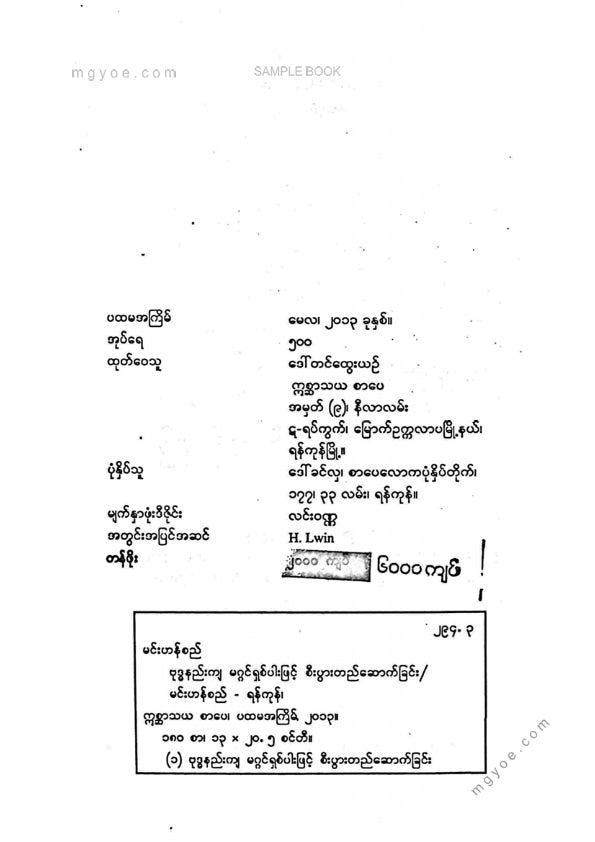 mgyoe.com SAMPLE BOOK
ပထမအကြိမ် မေလ၊ ၂၀၁၃ ခုနှစ်။
အုပ်ရေ ၅၀၀
ထုတ်ဝေသူ ဒေါ်တင်ထွေးယဉ်
ဣစ္ဆာသယ စာပေ
အမှတ် (၉)၊ နီလာလမ်း
ဋ-ရပ်ကွက်၊ မြောက်ဥက္ကလာပမြို့နယ်၊
ရန်ကုန်မြို့။
ပုံနှိပ်သူ ဒေါ်ခင်လှ၊ စာပေလောကပုံနှိပ်တိုက်၊
၁၇၇၊ ၃၃ လမ်း၊ ရန်ကုန်။
မျက်နှာဖုံးဒီဇိုင်း လင်းဝဏ္ဏ
အတွင်းအပြင်အဆင် H. Lwin
တန်ဖိုး ၂၀၀၀ ကျပ် ၆၀၀၀ ကျပ်
၂၉၄.၃
မင်းဟန်စည်
ဗုဒ္ဓနည်းကျ မဂ္ဂင်ရှစ်ပါးဖြင့် စီးပွားတည်ဆောက်ခြင်း/
မင်းဟန်စည် - ရန်ကုန်၊
ဣစ္ဆာသယ စာပေ၊ ပထမအကြိမ်၊ ၂၀၁၃။
၁၈၀ စာ၊ ၁၃ × ၂၀.၅ စင်တီ။
(၁) ဗုဒ္ဓနည်းကျ မဂ္ဂင်ရှစ်ပါးဖြင့် စီးပွားတည်ဆောက်ခြင်း
mgyoe.com